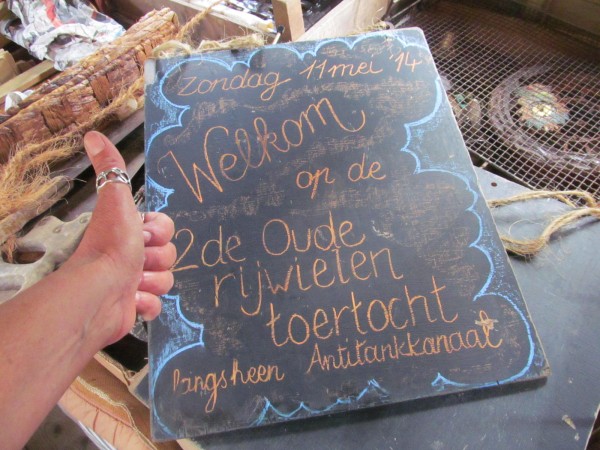 Zondag 11 mei '14
Welkom
op de
2de Oude
rijwielen
toertocht
langsheen Antitankkanaal